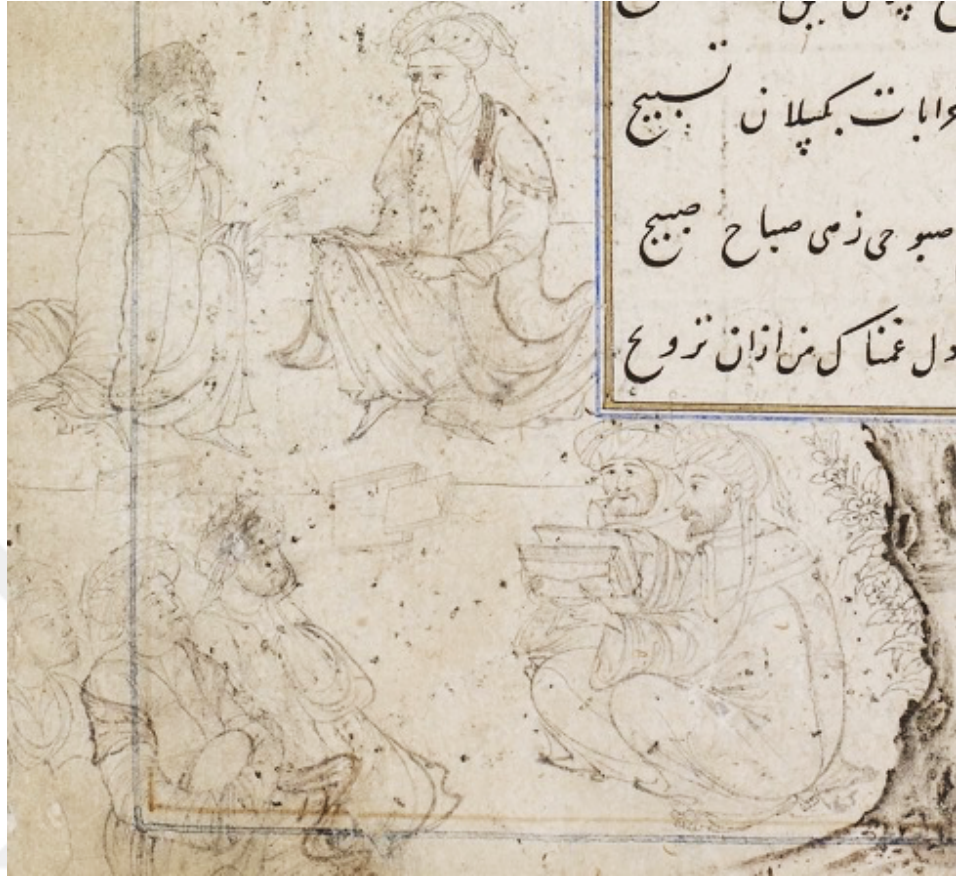 خرابات بکسلان تسبیح
صبوحی ز می صباح صبیح
دل غمناک من ازان ترویح